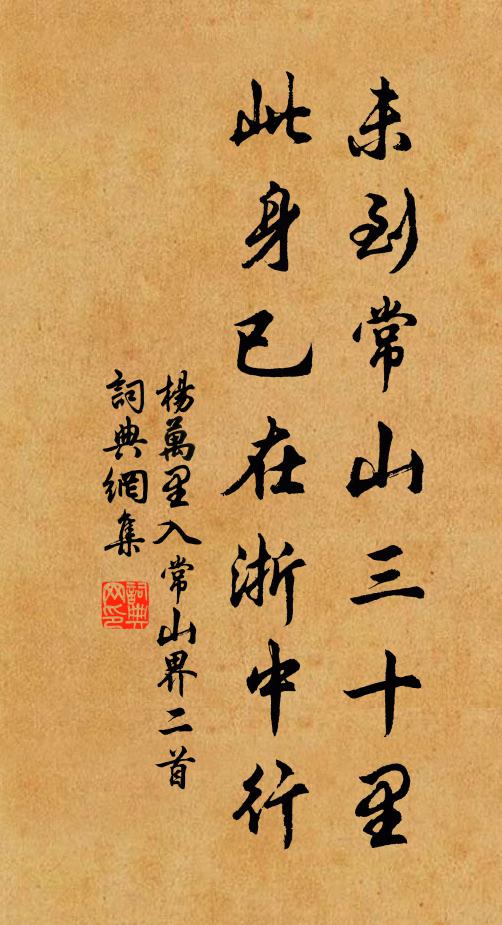 未到常山三十里
此身已在浙中行
楊萬里入常山界二首
詞典網集
詞典
网印